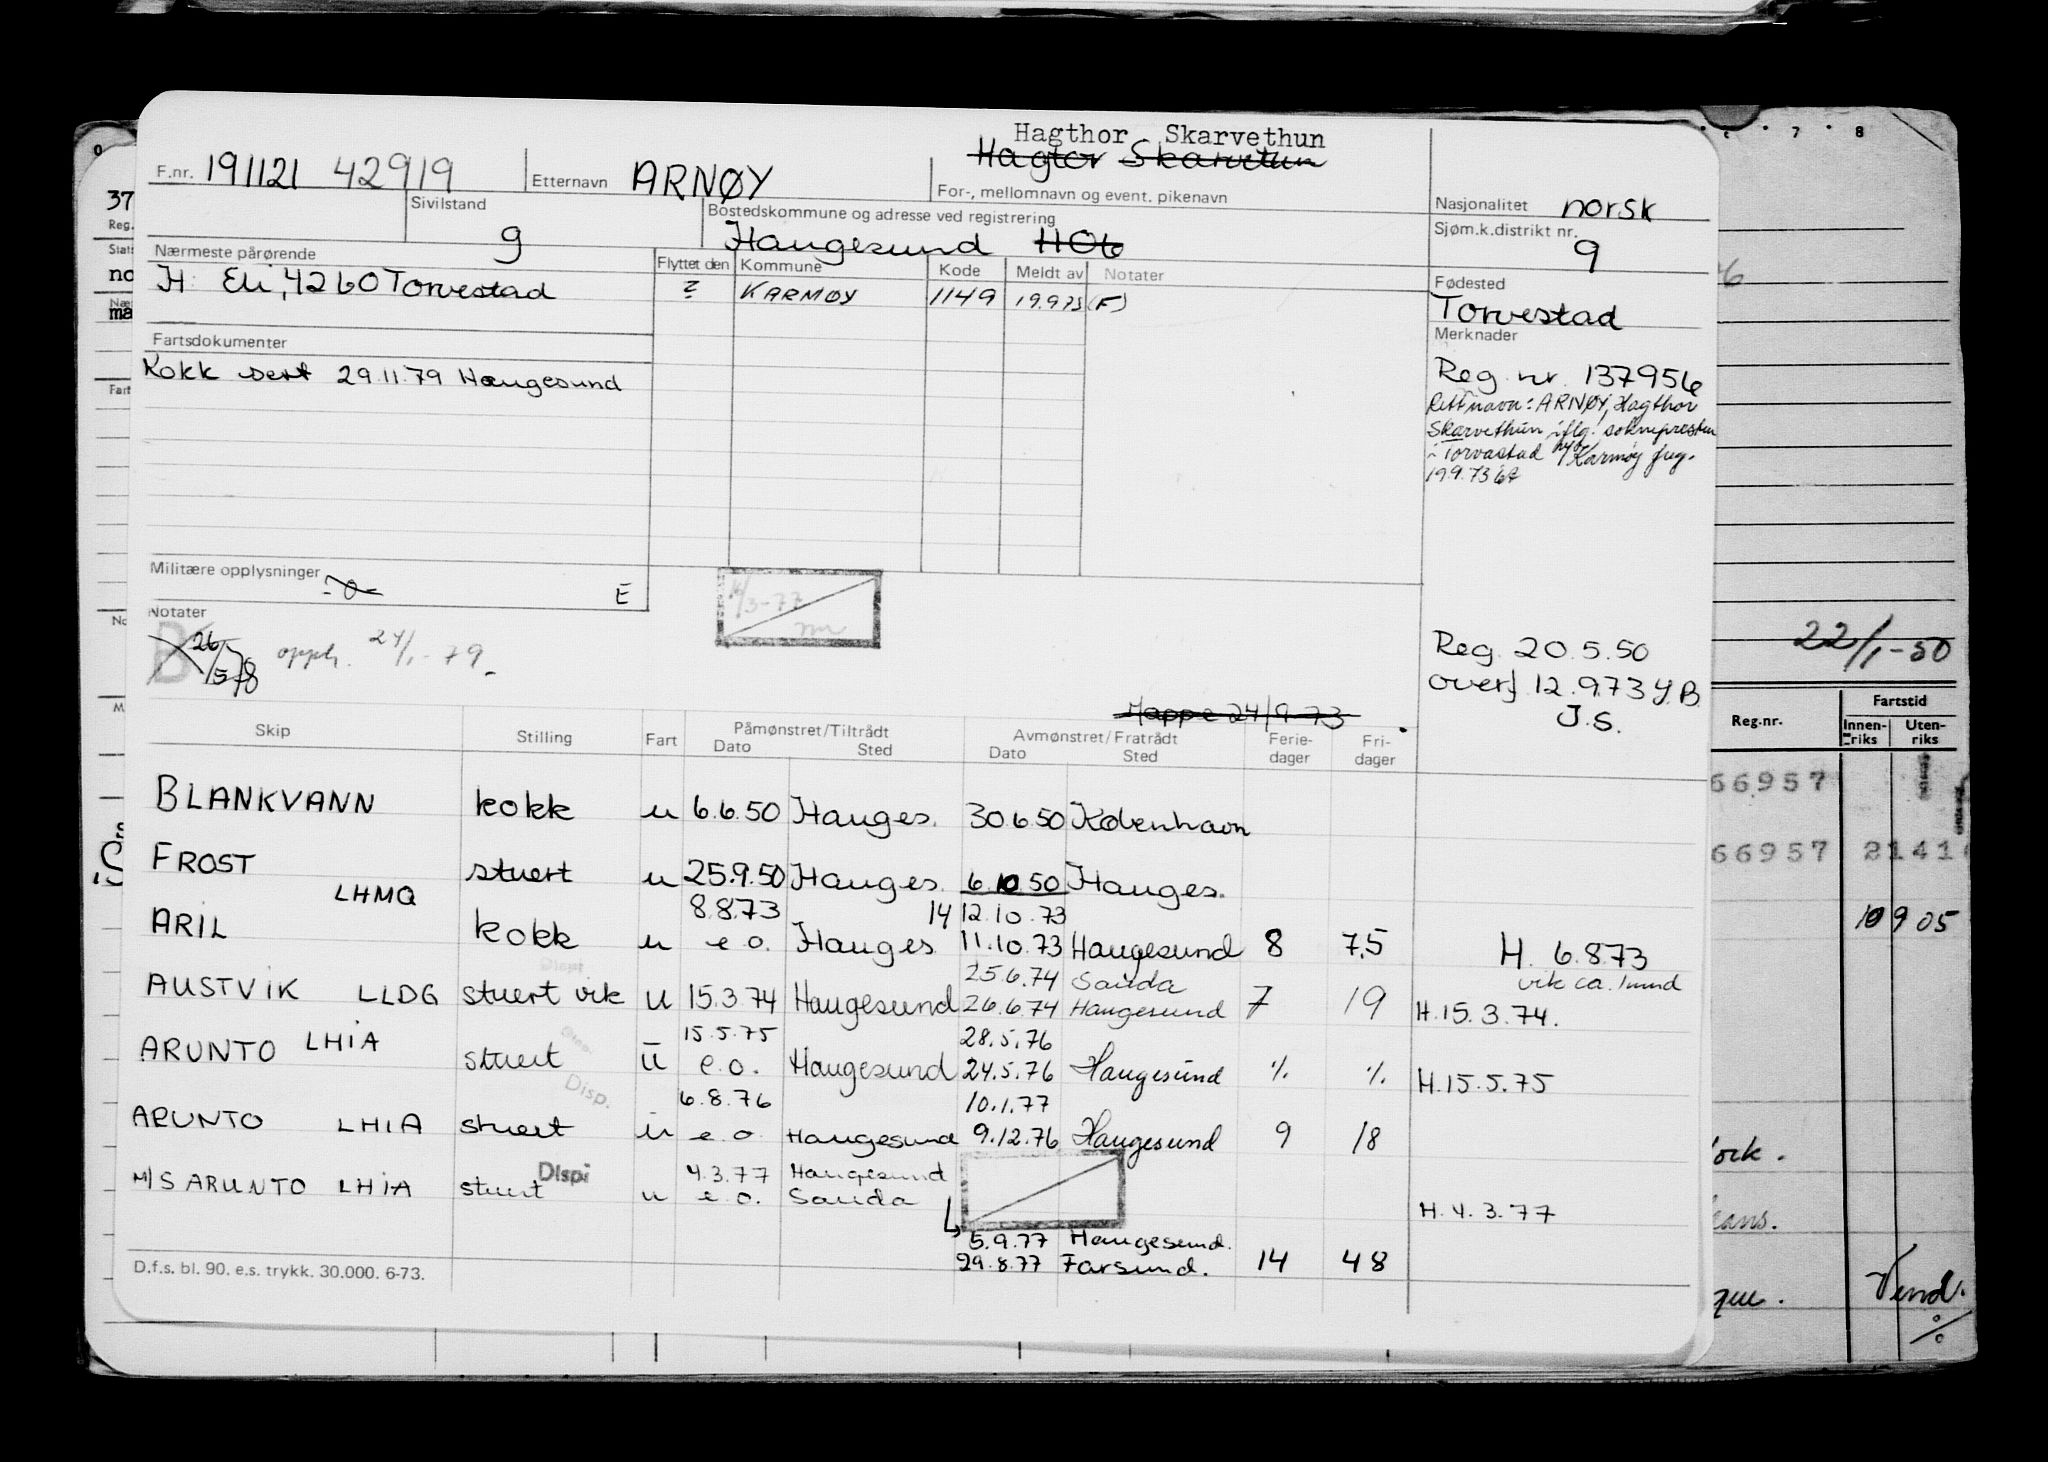 Hagthor Skarvethun
F.nr. 191121 42919 Etternavn ARNØY Hagtor Skarvethun
For-, mellomnavn og event. pikenavn
Nasjonalitet norsk
Sivilstand g
Bostedskommune og adresse ved registrering
Haugesund 1106
Sjøm.k.distrikt nr. 9
Nærmeste pårørende
H: Eli, 4260 Torvestad
Flyttet den Kommune Kode Meldt av Notater
? KARMØY 1149 19.9.73 (F)
Fødested
Torvestad
Fartsdokumenter
Kokk sert 29.11.79 Haugesund
Merknader
Reg. nr. 137956
Rett navn: ARNØY, Hagthor
Skarvethun iflg. soknepresten
i Torvastad Karmøy
19.9.73
Militære opplysninger E
Notater
B 26/5 78 opph. 24/1-79.
11/3-77
Reg. 20.5.50
overf. 12.9.73 Y.B
J.S.
22/1-50
Mappe 24/9-73
Skip Stilling Fart Påmønstret/Tiltrådt Avmønstret/Fratrådt Ferie- Fri-
Dato Sted Dato Sted dager dager
Reg.nr. Fartstid
Innen- Uten-
riks riks
BLANKVANN kokk u 6.6.50 Hauges. 30.6.50 København
66957
FROST stuert u 25.9.50 Hauges. 6.10.50 Hauges.
66957 2141
LHMQ 8.8.73 14 12.10.73
ARIL kokk u e.o. Hauges. 11.10.73 Haugesund 8 7,5 H. 6.8.73
vik ca. 1 mnd
10905
25.6.74 Sauda
AUSTVIK LLDG stuert vik u 15.3.74 Haugesund 26.6.74 Haugesund 7 19 H.15.3.74.
15.5.75 28.5.76
ARUNTO LHIA stuert u e.o. Haugesund 24.5.76 Haugesund % % H.15.5.75
Disp.
6.8.76 10.1.77
ARUNTO LHIA stuert u e.o. Haugesund 9.12.76 Haugesund 9 18
Disp 4.3.77 Haugesund
M/S ARUNTO LHIA stuert u e.o. Sauda H.4.3.77
5.9.77 Haugesund.
29.8.77 Farsund. 14 48
D.f.s. bl. 90. e.s. trykk. 30.000. 6-73.
Vend.